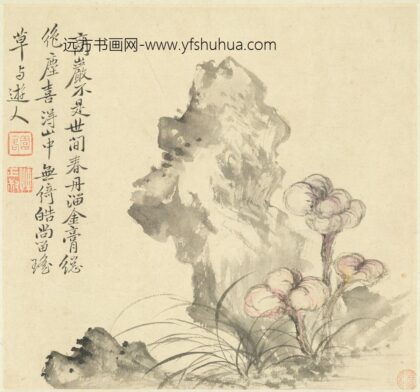 远方书画网-www.yfshuhua.com
巖不是世間春丹溜金膏總
作塵喜得山中無綺皓尚留瑤
草与遊人